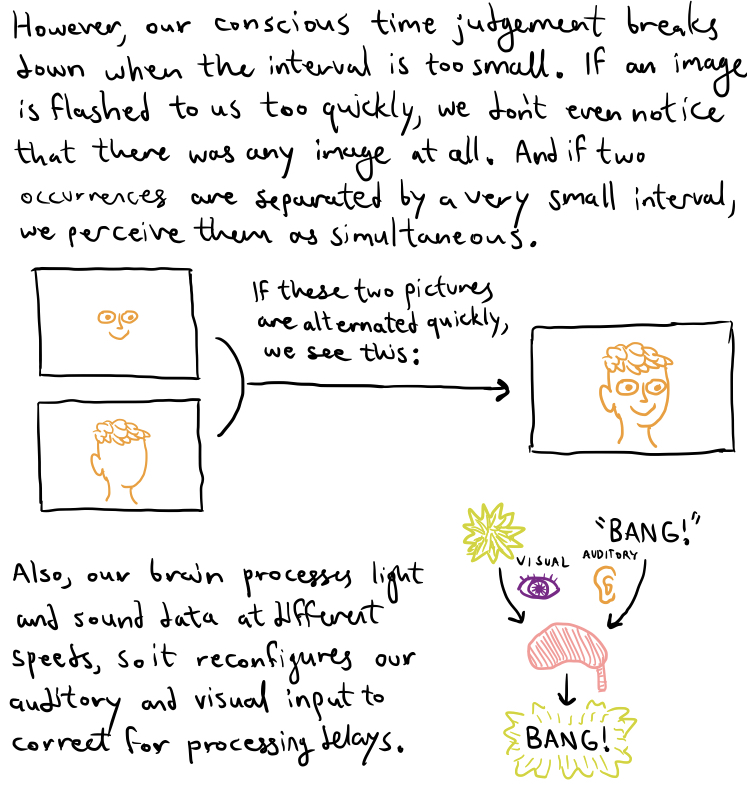 However, our conscious time judgement breaks
down when the interval is too small. If an image
is flashed to us too quickly, we don't even notice
that there was any image at all. And if two
occurrences are separated by a very small interval,
we perceive them as simultaneous.
If these two pictures
are alternated quickly,
we see this:
"BANG!"
VISUAL
AUDITORY
Also, our brain processes light
and sound data at different
speeds, so it reconfigures our
auditory and visual input to
correct for processing delays.
BANG!